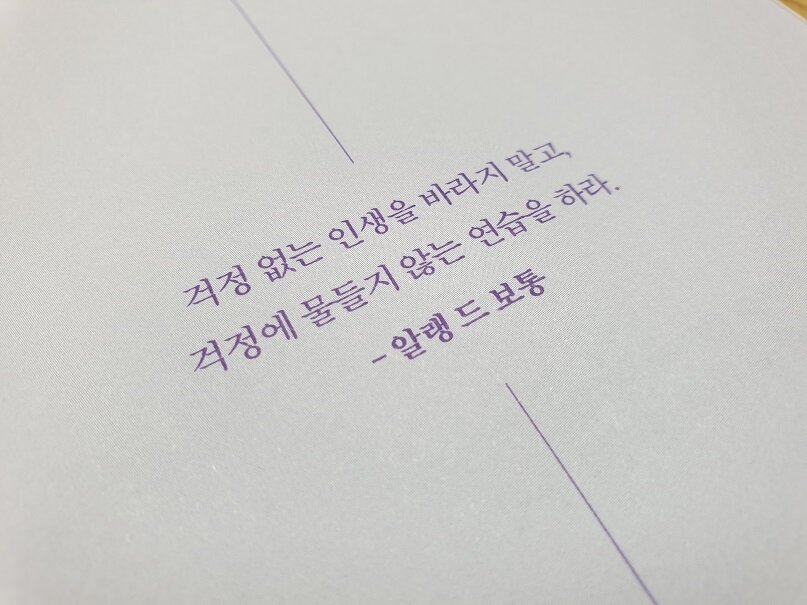 걱정 없는 인생을 바라지 말고,
걱정에 물들지 않는 연습을 하라.
- 알랭 드 보통